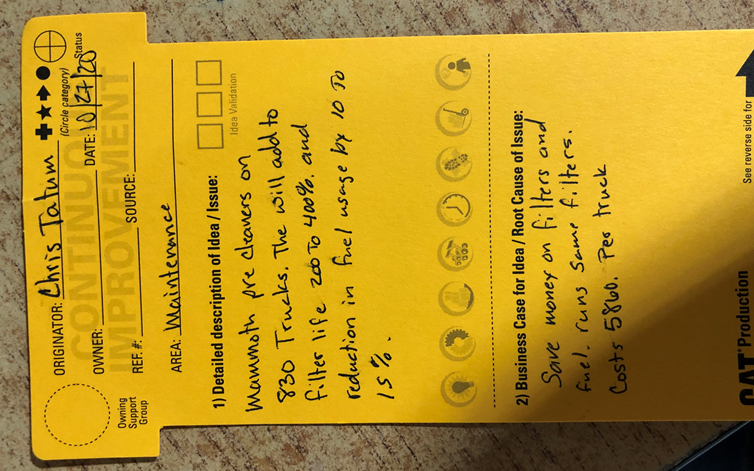 ORIGINATOR: Chris Tatum
(Circle category)
Status
CONTINUOUS
IMPROVEMENT
OWNER:
DATE: 10/27/20
REF. #:
SOURCE:
AREA: Maintenance
Owning
Support
Group
Idea Validation
1) Detailed description of Idea / Issue:
Mammoth pre cleaners on
830 Trucks. The will add to
filter life 200 To 400%. and
reduction in fuel usage by 10 To
15%.
2) Business Case for Idea / Root Cause of Issue:
Save money on filters and
fuel. runs same filters.
Costs 5860. Per truck
See reverse side for
CAT Production